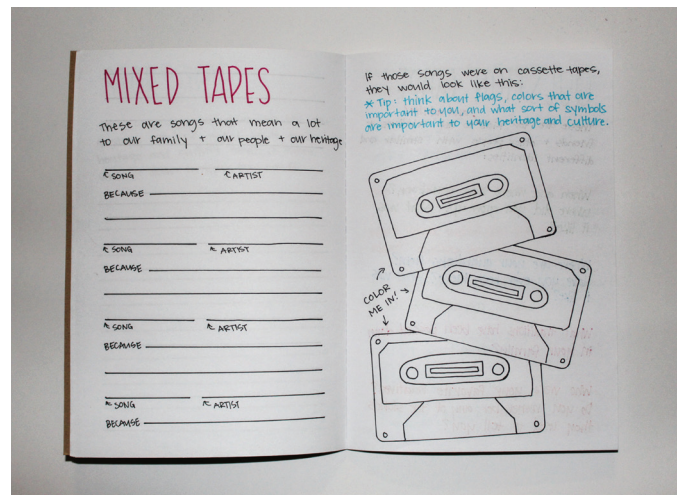 MIXED TAPES
These are songs that mean a lot
to our family + our people + our heritage
SONG
ARTIST
BECAUSE
SONG
ARTIST
BECAUSE
SONG
ARTIST
BECAUSE
SONG
ARTIST
BECAUSE
If those songs were on cassette tapes,
they would look like this:
* Tip: think about flags, colors that are
important to you, and what sort of symbols
are important to your heritage and culture.
COLOR
ME IN!